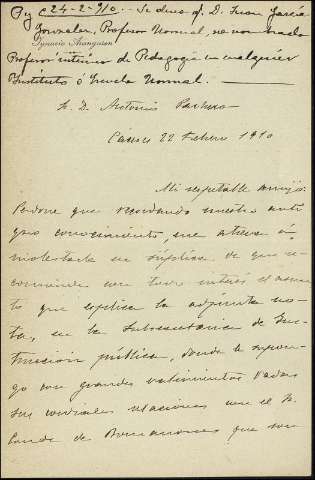 24-2-910.- Se desea q. D. Juan García
González, Profesor Normal, sea nombrado
Ignacio
Profesor interino de Pedagogía en cualquier
Instituto ó Escuela Normal.
S. D. Antonio
22 Febrero 1910
Mi respetable amigo:
Perdone que recordando nuestro anti
guo conocimiento, me atreva á
molestarle en súplica de que re
comiende con todo interés el asun
to que explica la adjunta no
ta, en la Subsecretaria de Ins
trucción pública, donde le supon
go con grandes valimientos dadas
sus cordiales relaciones con el Sr.
Conde de Romanones que son